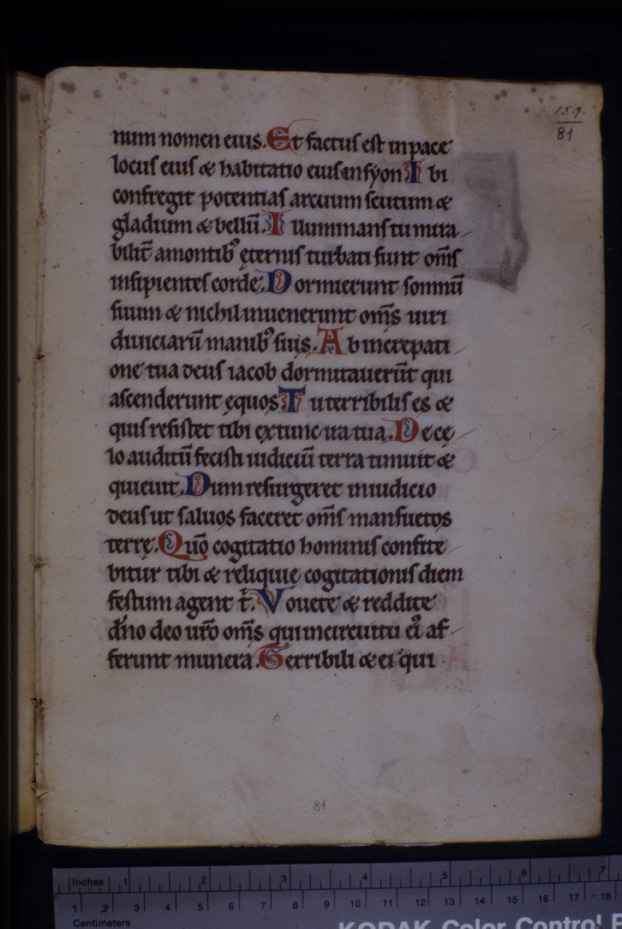 159.
81
num nomen eius. Et factus est inpace
locus eius & habitatio eius insyon I bi
confregit potentias arcuum scutum &
gladium & bellū. I lluminans tu mira
bilit̄ amontib; ęternis turbati sunt om̄s
insipientes corde. D ormierunt somnū
suum & nichil inuenerunt om̄s uiri
diuiciarū manib; suis. A b increpati
one tua deus iacob dormitauerūt qui
ascenderunt equos. T u terribilis es &
quis resistet tibi extunc ira tua. D e cę
lo auditū fecisti iudiciū terra timuit &
quieuit. D um resurgeret iniudicio
deus ut saluos faceret om̄s mansuetos
terrę. Quō cogitatio hominis confite
bitur tibi & reliquię cogitationis diem
festum agent t̄. V ouete & reddite
dn̄o deo ur̄o om̄s qui incircuitu ei' af
ferunt munera. Terribili & ei qui
81
Inches 1 2 3 4 5 6 7
1 2 3 4 5 6 7 8 9 10 11 12 13 14 15 16 17 18
Centimeters
KODAK Color Control P